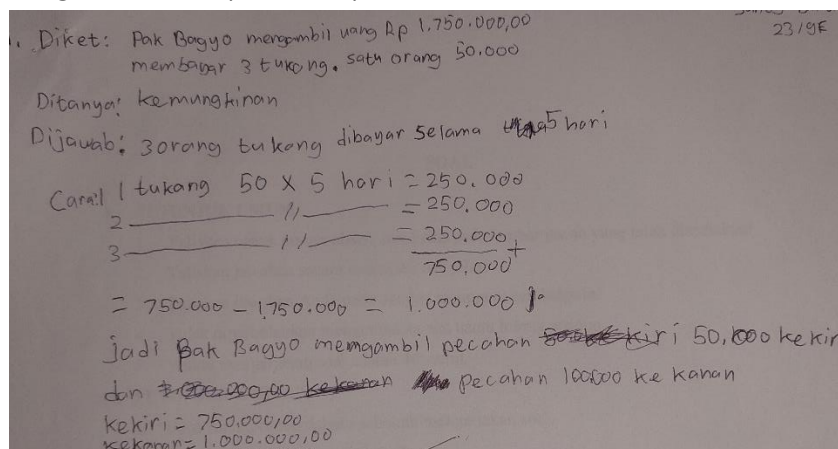 . Diket: Pak Bagyo mengambil uang Rp 1.750.000,00
23/9E
membayar 3 tukang. satu orang 50.000
Ditanya: kemungkinan
Dijawab: 3 orang tukang dibayar selama 5 hari
Cara: 1 tukang 50 x 5 hari = 250.000
2 ——— // ——— = 250.000
3 ——— // ——— = 250.000 +
750.000
= 750.000 - 1.750.000 = 1.000.000
jadi Pak Bagyo memgambil pecahan 50.000 kekir
dan pecahan 100.000 ke kanan
kekiri = 750.000,00
kekanan = 1.000.000,00